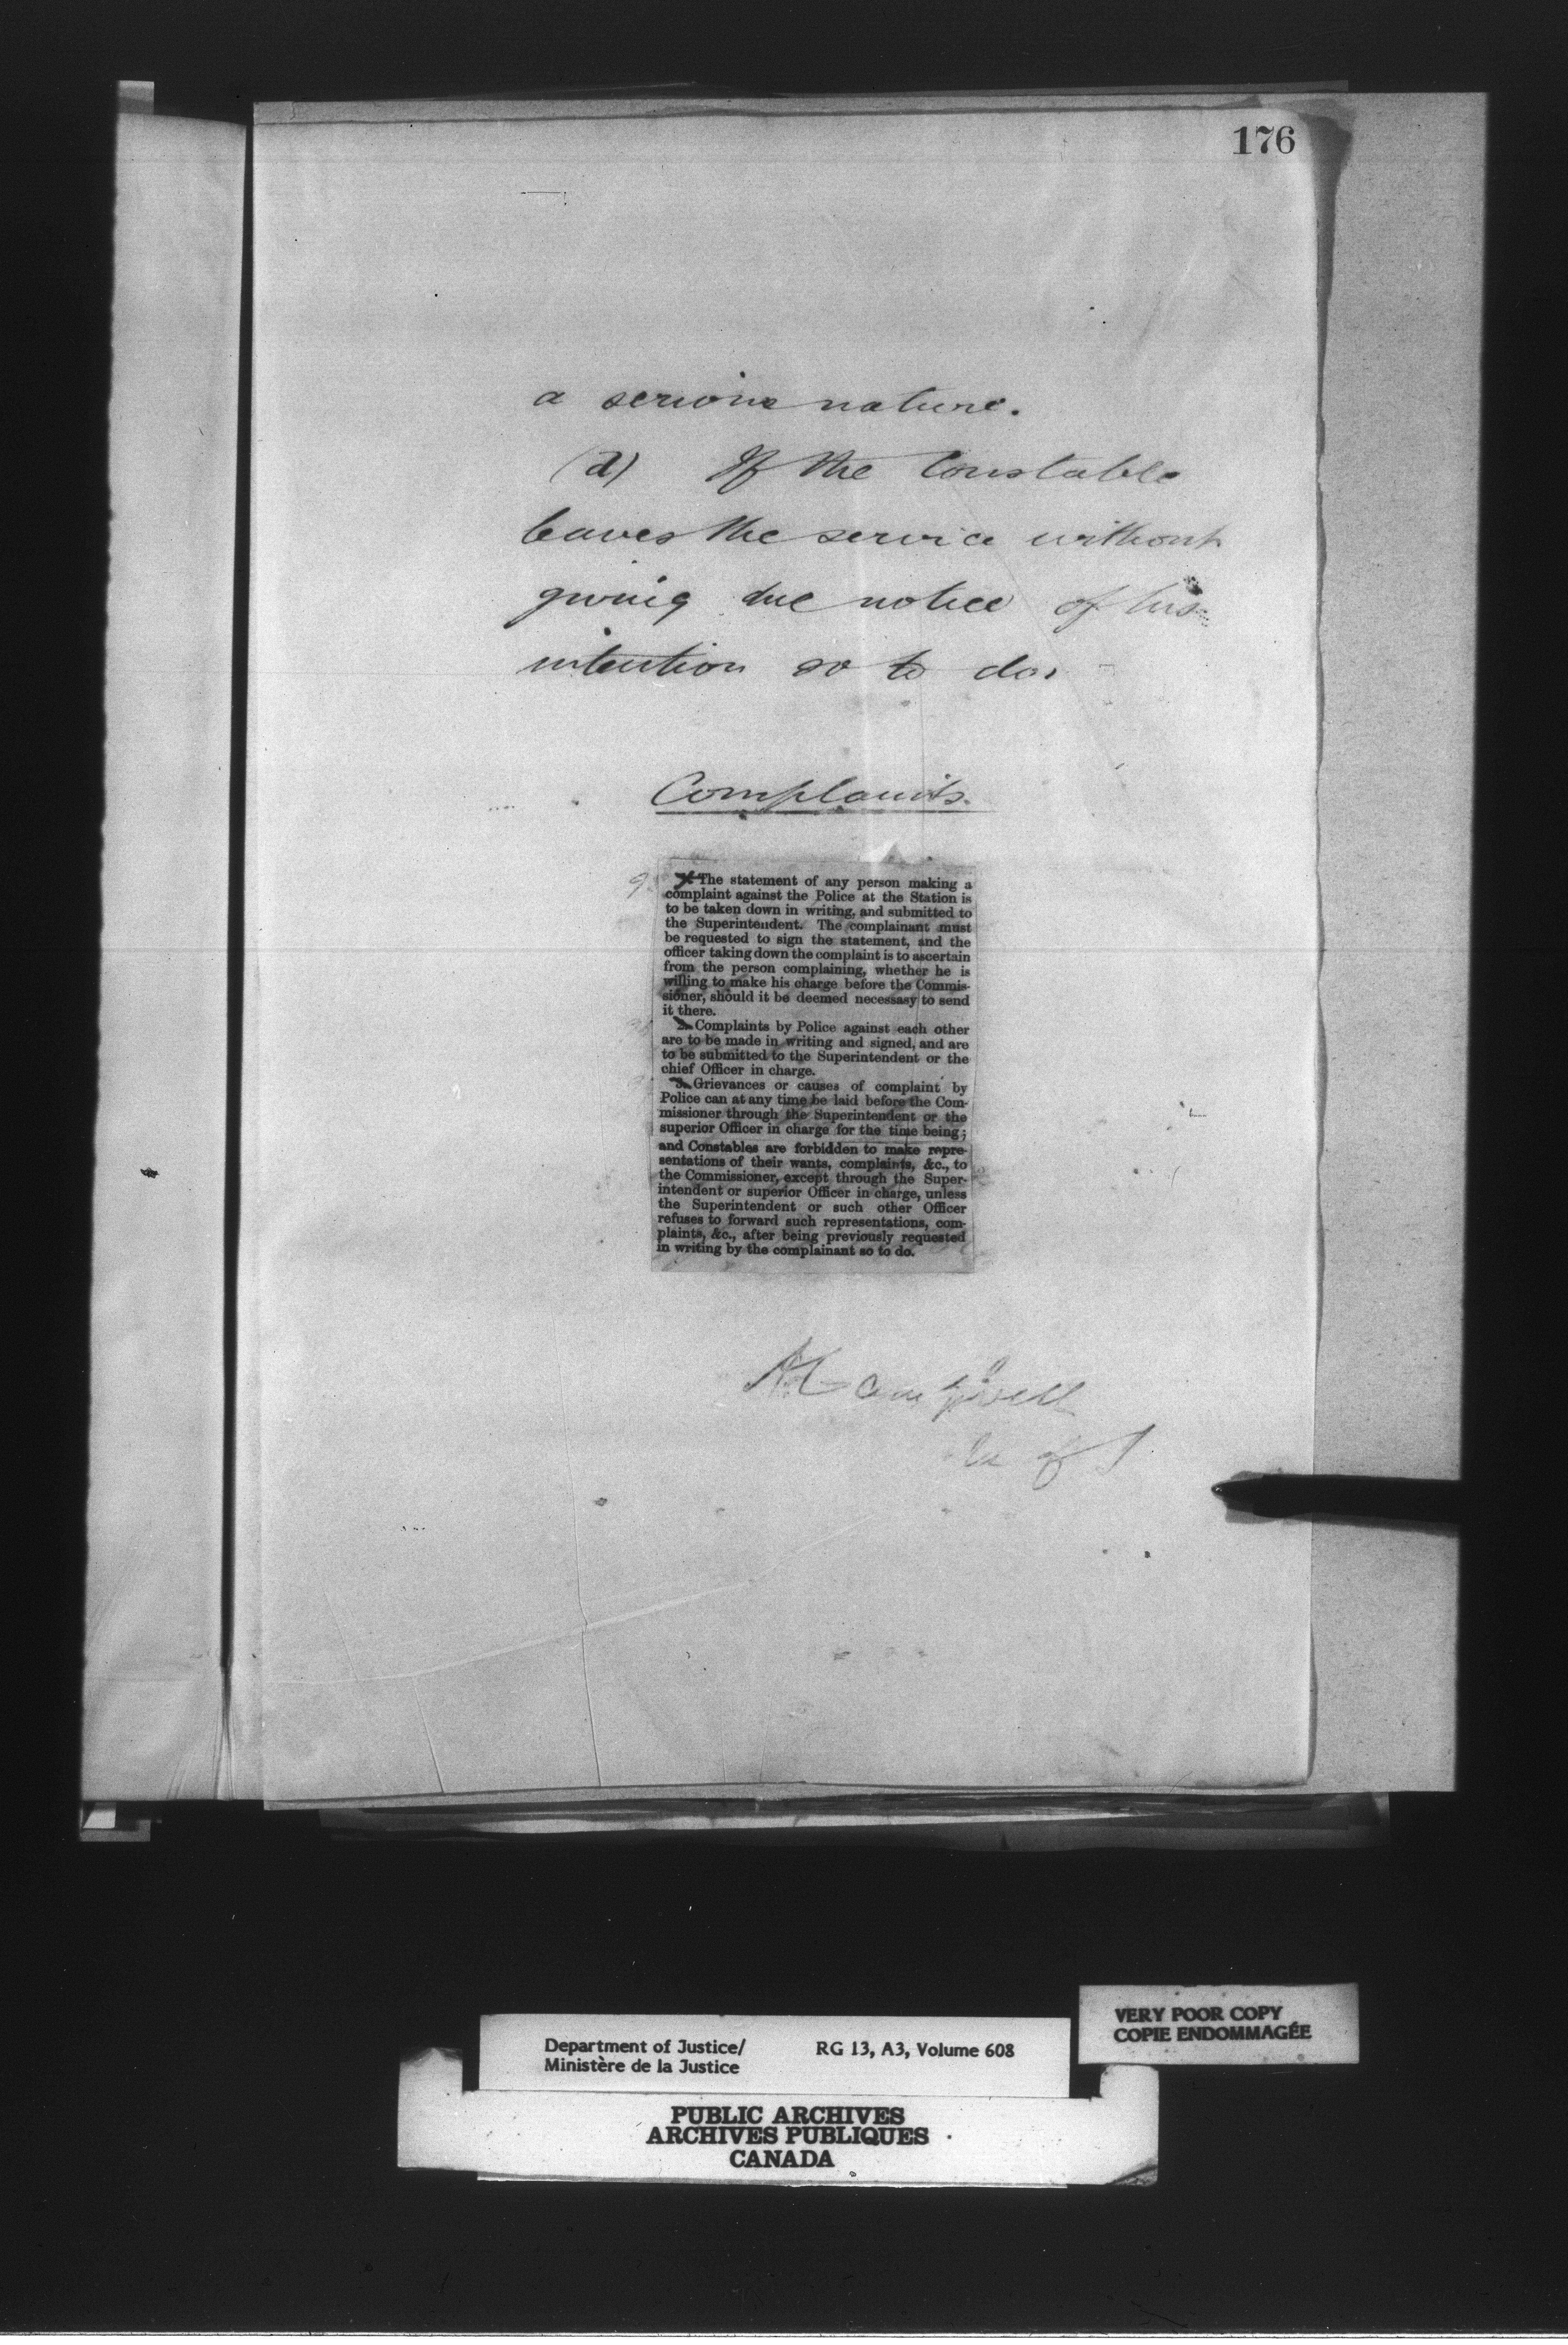 176
a serious nature.
(d) If the Constable
leaves the service without
giving due notice of his
intention so to do.
Complaints.
The statement of any person making a
complaint against the Police at the Station is
to be taken down in writing, and submitted to
the Superintendent. The complainant must
be requested to sign the statement, and the
officer taking down the complaint is to ascertain
from the person complaining, whether he is
willing to make his charge before the Commis-
sioner, should it be deemed necessasy to send
it there.
2. Complaints by Police against each other
are to be made in writing and signed, and are
to be submitted to the Superintendent or the
chief Officer in charge.
3. Grievances or causes of complaint by
Police can at any time be laid before the Com-
missioner through the Superintendent or the
superior Officer in charge for the time being;
and Constables are forbidden to make repre-
sentations of their wants, complaints, &c., to
the Commissioner, except through the Super-
intendent or superior Officer in charge, unless
the Superintendent or such other Officer
refuses to forward such representations, com-
plaints, &c., after being previously requested
in writing by the complainant so to do.
A Campbell
of J
VERY POOR COPY
COPIE ENDOMMAGÉE
Department of Justice/ RG 13, A3, Volume 608
Ministère de la Justice
PUBLIC ARCHIVES
ARCHIVES PUBLIQUES
CANADA